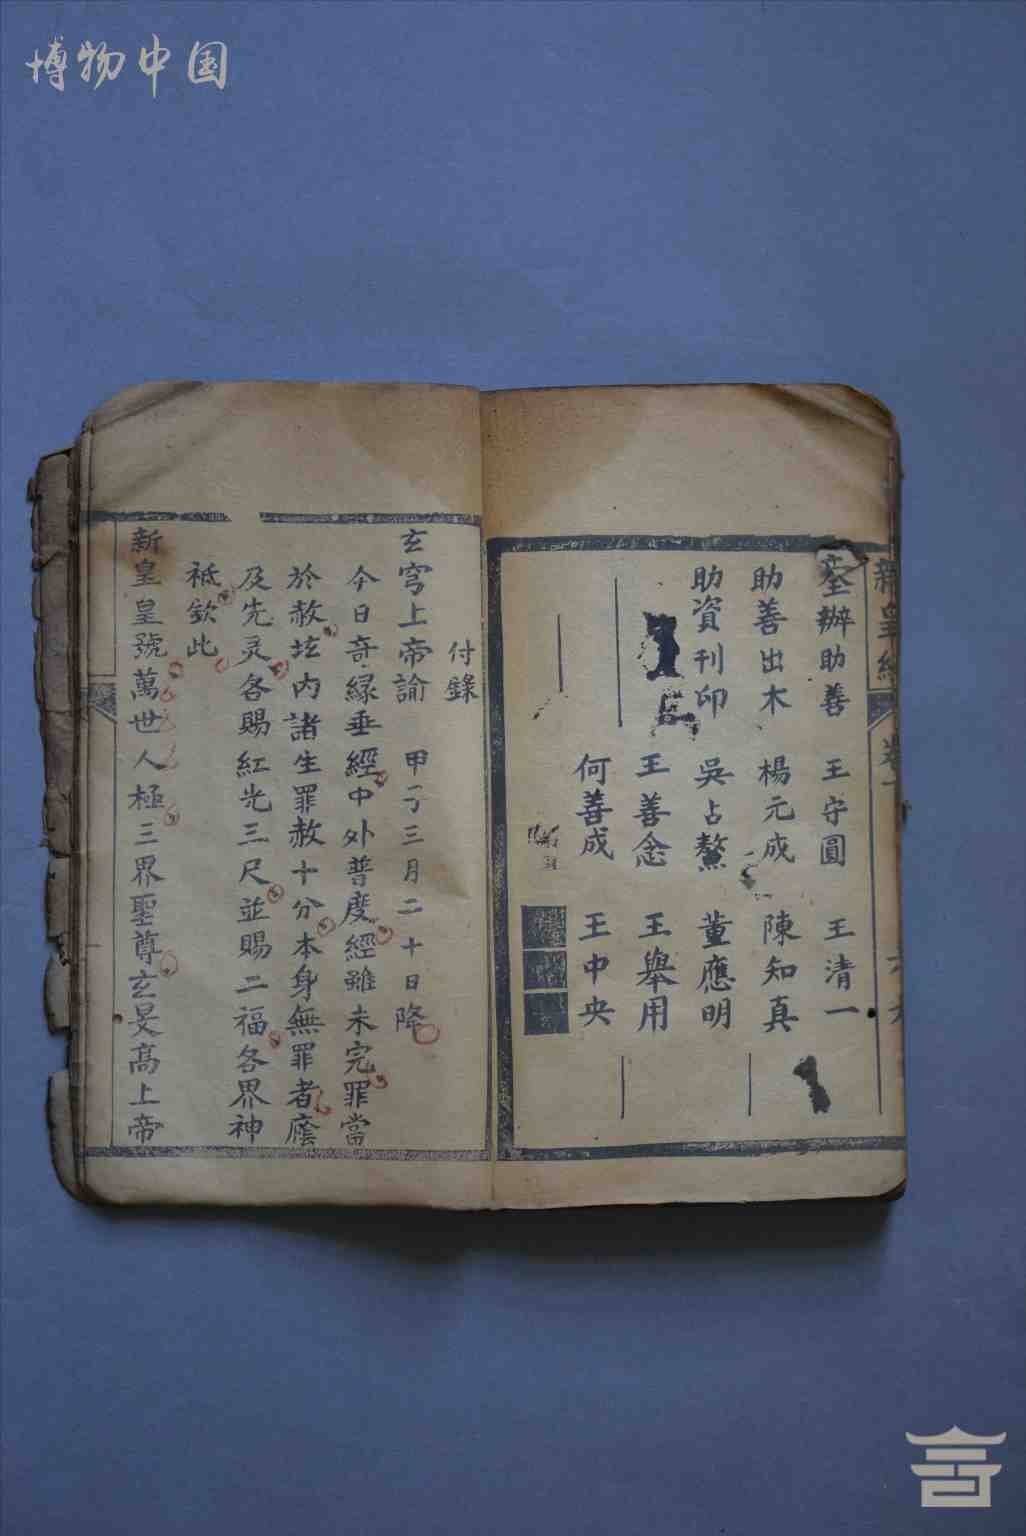 博物中国
新皇經 卷一 六九
辦助善 王守圓 王清一
助善出木 楊元成 陳知真
助資刊印 吳占鰲 董應明
王善念 王舉用
何善成 王中央
付錄
玄穹上帝諭 甲子三月二十日降
今日奇緣垂經中外普度經雖未完罪當
於赦坛内諸生罪赦十分本身無罪者廕
及先灵各賜紅光三尺並賜二福各界神
祗欽此
新皇皇號萬世人極三界聖尊玄旻高上帝